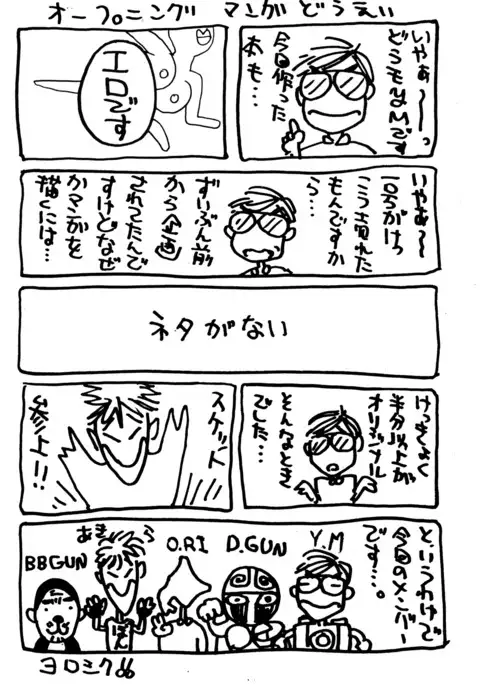 オープニングマンガどうぇい
いやぁ～～っ
どうもY.Mです
今回作った
本も…
エロです
いやぁ～
1号がけっ
こう売れた
もんですか
ら…
ずいぶん前
から企画
されてたんで
すけどなぜ
かマンガを
描くには…
ネタがない
けっきょく
半分以上が
オリジナル
そんなとき
でした…
スケット
参上!!
というわけで
今回のメンバー
です…。
Y.M
D.GUN
O.RI
あきら
BBGUN
ほえ
ヨロシク